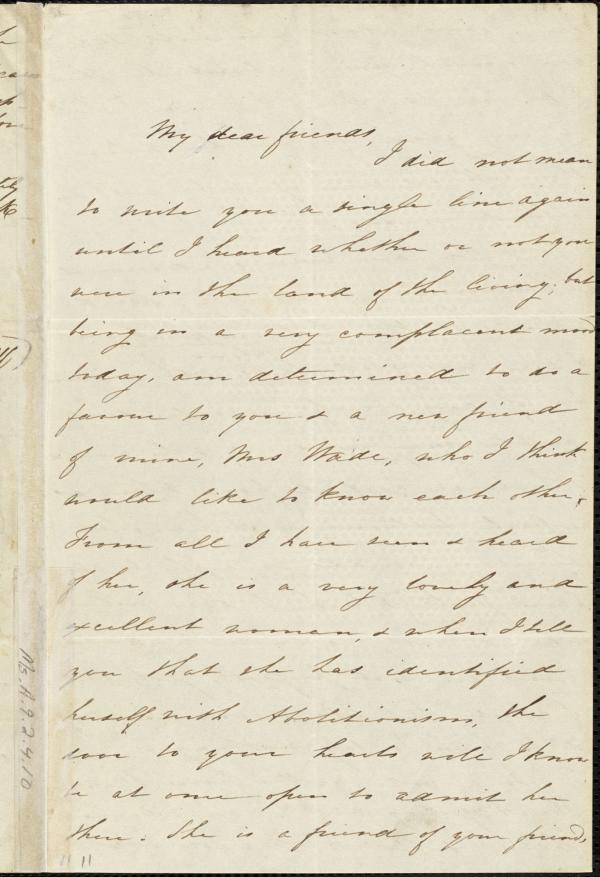 My dear friends,
I did not mean
to write you a single line again
until I heard whether or not you
were in the land of the living; but
being in a very complacent mood
today, am determined to do a
favour to you & a new friend
of mine, Mrs Wade, who I think
would like to know each other.
From all I have seen & heard
of her, she is a very lovely and
excellent woman, & when I tell
you that she has identified
herself with Abolitionism, the
door to your hearts will I know
be at once open to admit her
there. She is a friend of your friends,
Ms.A.9.2.4.10
11 11